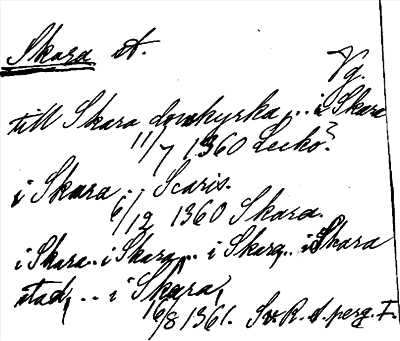 Skara st.
Vg.
till Skara domkyrka .. i Skara
11/7 1360 Leckö?
i Skara .. Scaris.
6/12 1360 Skara.
i Skara .. i Skara .. i Skara .. i Skara
stad, .. i Skara,
16/8 1361. Sv. R. A. perg. F.